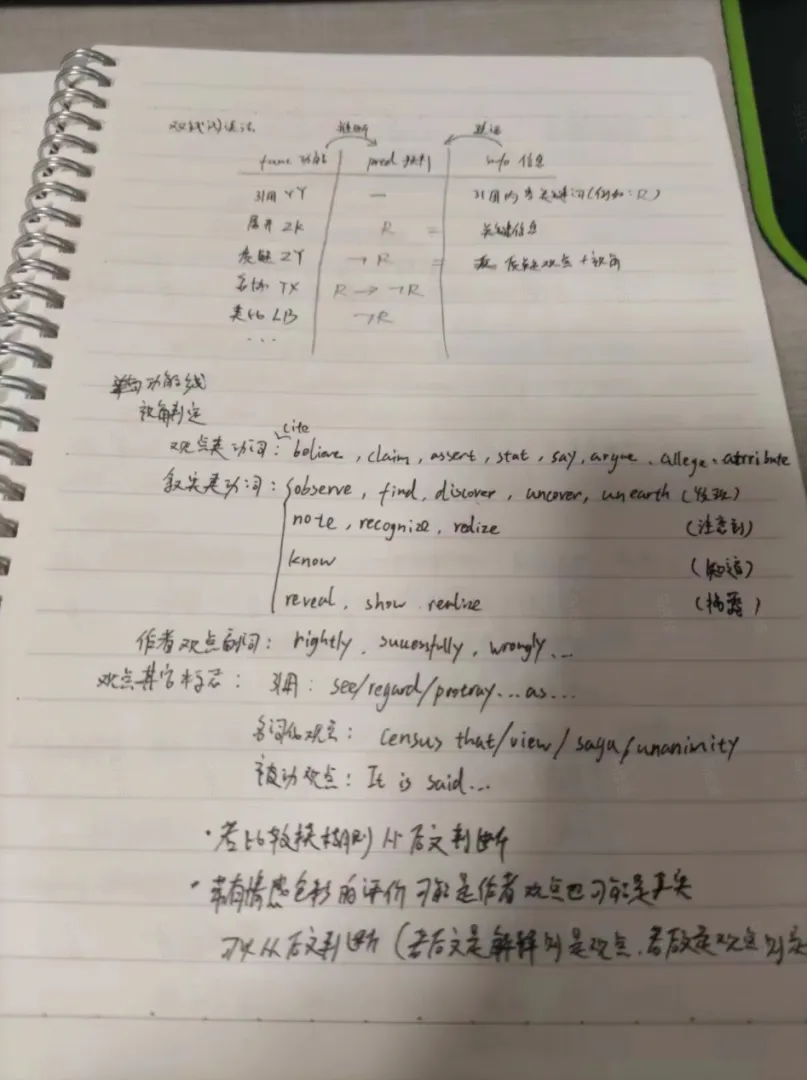 双线阅读法
推断 验证
func 功能 pred 预判 info 信息
引用 YY — 引用内容关键词(例如:R)
展开 ZK R = 关键信息
质疑 ZY ¬R = 质疑观点+视角
YX R → ¬R
类比 LB ¬R
...
功能线
视角判定
cite
观点类动词: believe, claim, assert, stat, say, argue, allege, attribute
叙实类动词: observe, find, discover, uncover, unearth (发现)
note, recognize, realize (注意到)
know (知道)
reveal, show realize (揭露)
作者观点副词: rightly, successfully, wrongly...
观点其它标志: 引用: see/regard/protray...as...
名词化观点: census that/view/ saga/unanimity
被动观点: It is said...
·若比较模糊则从后文判断
·带有情感色彩的评价可能是作者观点也可能是事实
可以从后文判断(若后文是解释则是观点,若后文是观点则是